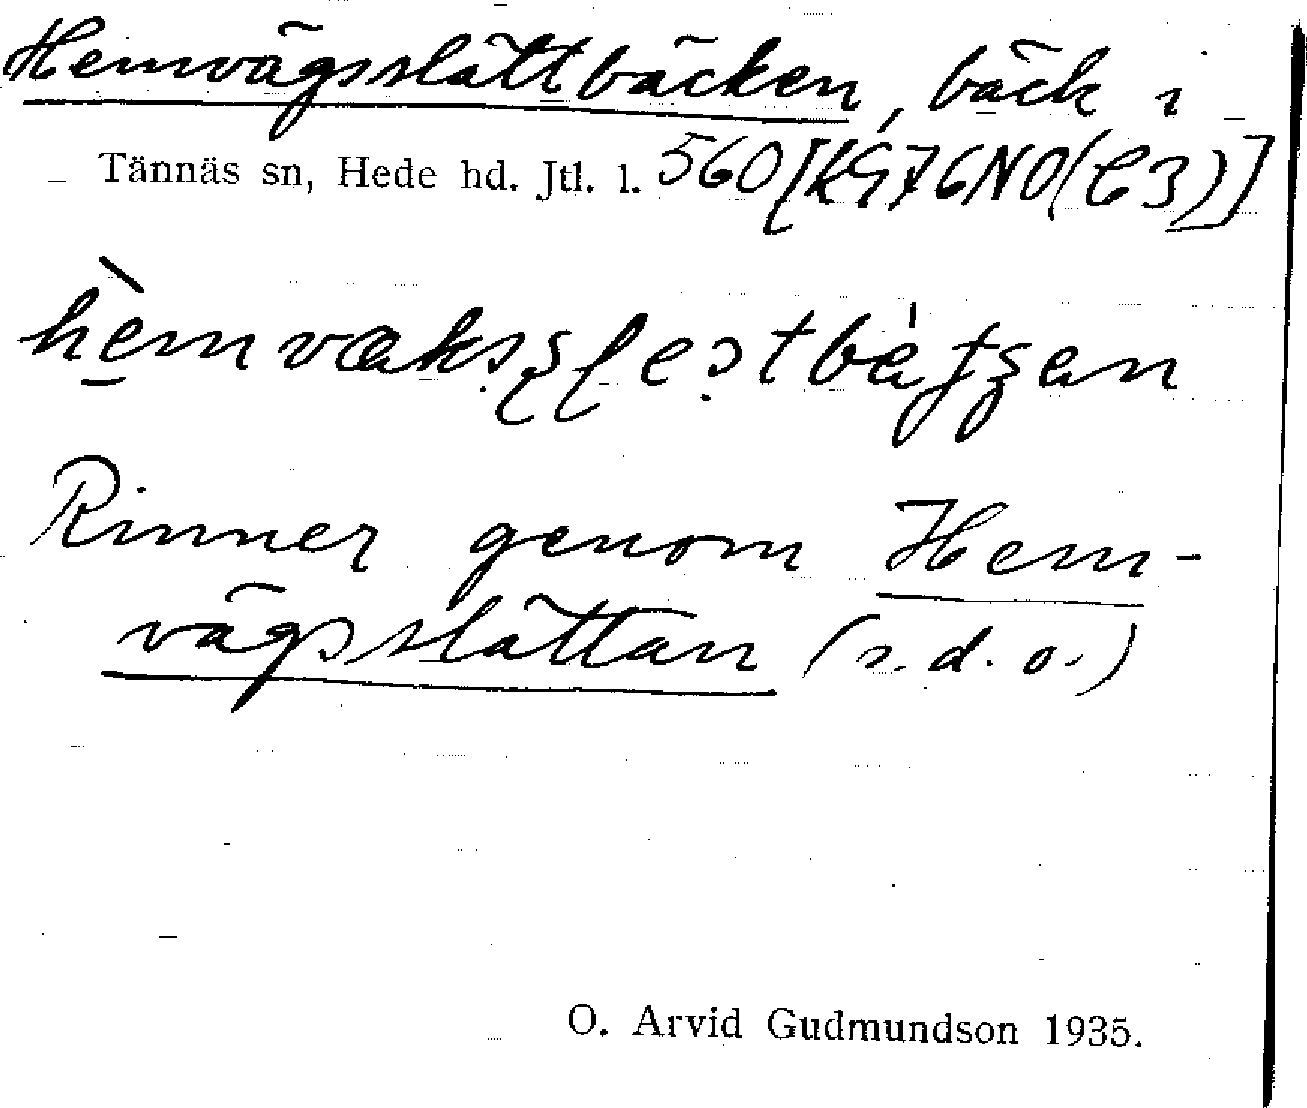 Hemvägsslättbäcken, bäck i
Tännäs sn, Hede hd. Jtl. l. 560 [KG76NO(C3)]
Rinner genom Hem-
vägsslättan (s.d.o.)
O. Arvid Gudmundson 1935.